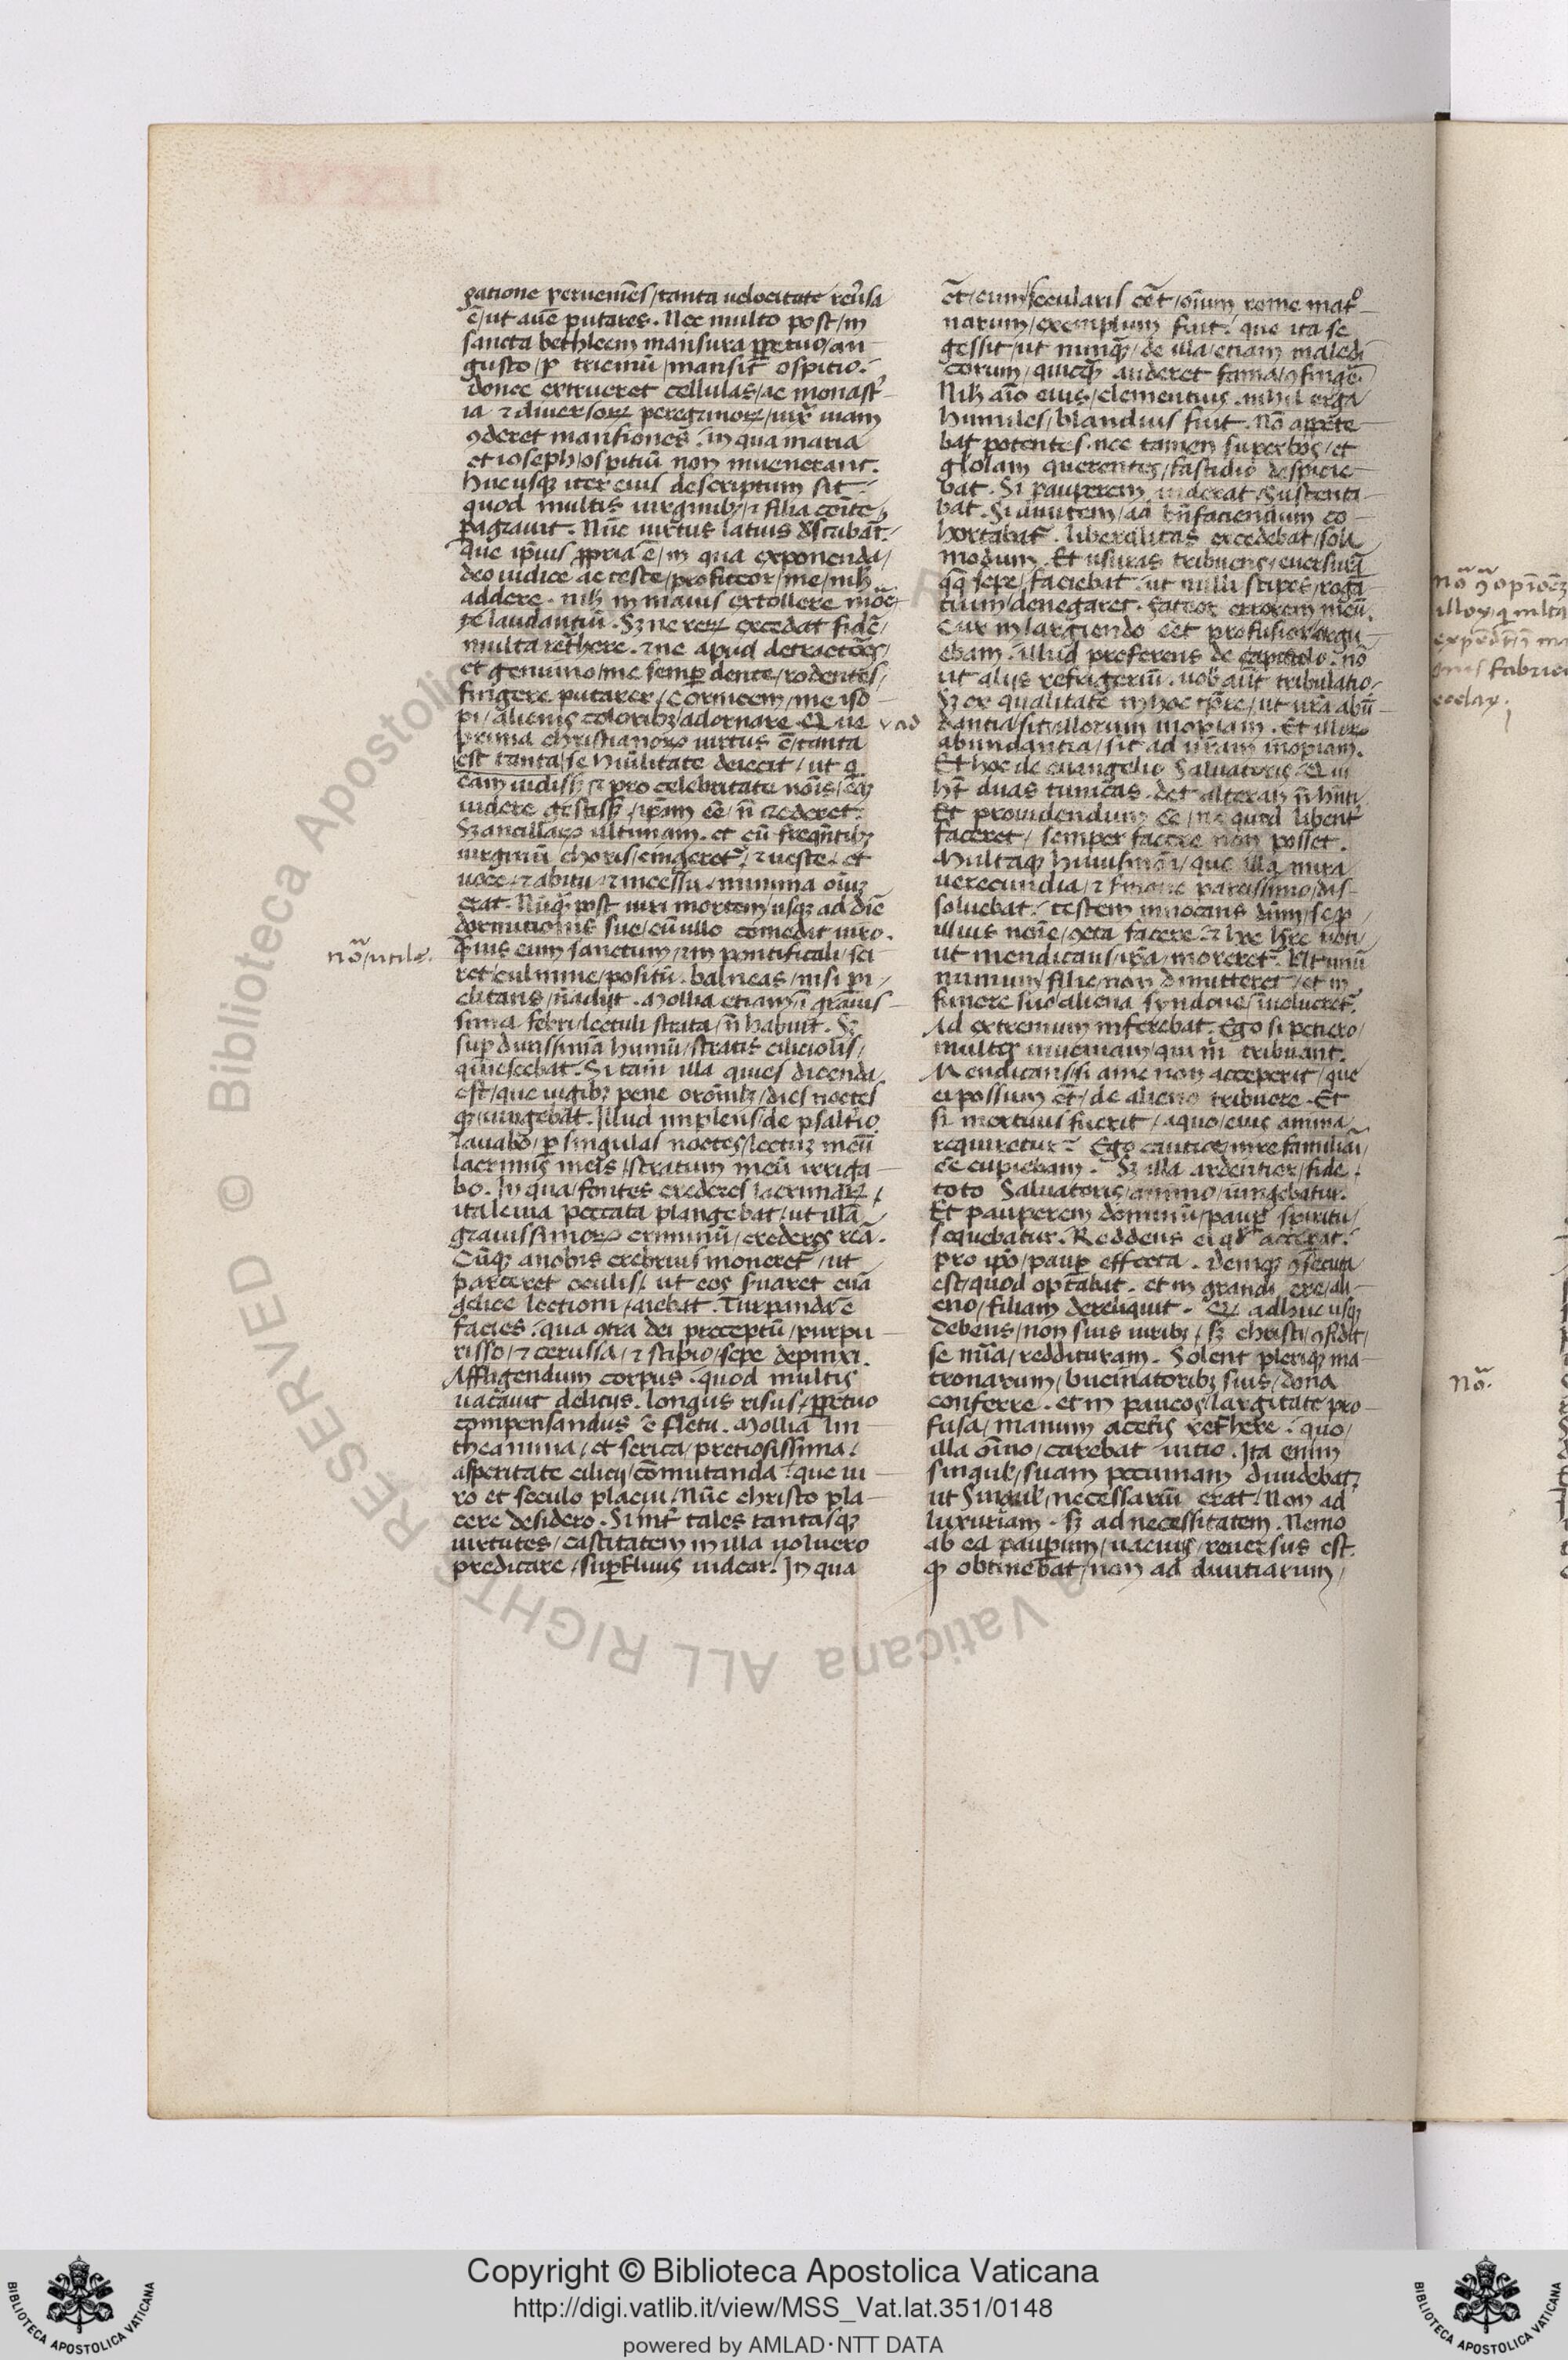 gatione perueniẽs/tanta uelocitate reũsa
ẽ/ut auẽ putares. Nec multo post/in
sancta bethleem mansura ꝑpetuo/an
gusto/ꝑ trienniũ/mansit ospitio.
donec extrueret cellulas/ac monast
ia ⁊ diuersoꝝ peregrinoꝝ/iux̃ uiam
ꝯderet mansiones. in qua maria
et ioseph/ospitiũ non inuenerant.
Huc usqꝫ iter eius descriptum sit.
quod multis uirginibꝫ/⁊ filia comite
pagrauit. Nũc uirtus latius dscribat̃.
Que ip̃ius ꝓpria ẽ/in qua exponenda/
deo iudice ac teste/profiteor/me/nih̃
addere. nih̃ in maius extollere
laudantiũ. Sꝫ ne reꝝ excedat fidẽ/
multa ret̃here. ⁊ne apud detractores/
et genuino/me semꝑ dente/rodentes/
fingere putarer/cornicem/me iso
pi/alienis coloribꝫ/adornare. Que
prima christianoꝝ uirtus ẽ/tanta
est tanta/se hũilitate deiecit/ut q
eam uidissꝫ/⁊ pro celebritate nõis/eã
uidere gestissꝫ/ip̃am eẽ/ñ crederet.
Sꝫ ancillaꝝ ultimam. et cũ frequẽtibꝫ
uirginũ choris/cingeret̃/⁊ueste. et
uoce. ⁊ abitu. ⁊ incessu. minima oĩuꝫ
erat. Nũqꝫ post uiri mortem/usqꝫ ad diẽ
dormitionis sue/cũ ullo comedit uiro.
no/utile.
Quis eum sanctum/⁊in pontificali/sci
ret culmine/positũ. balneas/nisi pi/
clitans/ñ adijt. Mollia etiam/ĩ grauis
sima febri/lectuli strata/ñ habuit. Sꝫ
suꝑ durissimã humũ/stratis ciliciolis/
quiescebat. Si tam̃ illa quies dicenda
est/que iugibꝫ pene orõnibꝫ/dies noctes
qꝫ iungebat. Illud implens/de psaltĩo.
lauabo/ꝑ singulas noctes/lectuꝫ meũ
lacrimis meis/stratum meũ irriga
bo. In qua/fontes crederes lacrimaꝝ/
ita leuia peccata plangebat/ut illã
grauissimoꝝ criminũ/crederes reã.
Cũqꝫ anobis crebrius moneret̃/ut
parceret oculis/ut eos s̃uaret euã
gelice lectioni/aiebat. Turpanda ẽ
facies. qua ꝯtra dei preceptũ/purpu
risso/⁊ cerussa/⁊ stibio/sepe depinxi.
Affligendum corpus. quod multis
uacauit deliciis. longus risus/ꝑpetuo
compensandus ẽ fletu. Mollia lin
theamina/et serica/pretiosissima/
asperitate cilicij/cõmutanda. que ui
ro et seculo placui/Nũc christo pla
cere desidero. Si int̃ tales tantasqꝫ
uirtutes/castitatem in illa uoluero
predicare/suꝑfluus uidear. In qua
ad
et̃/cum secularis eet̃/oĩum rome mat
narum/exemplum fuit. que ita se
gessit/ut nunqꝫ/de illa/etiam maledi
corum/quicqꝫ auderet fama/ꝯfingẽ.
Nih̃ aĩo eius/clementius. nihil erga
humiles/blandius fuit. Nõ appete
bat potentes. nec tamen superbos/et
gl̃olam querentes/fastidio despicie
bat. Si pauperem uiderat/Sustenta
bat. Si diuitem/ad bñfaciendum co
hortabat̃. liberalitas excedebat/sola
modum. Et usuras tribuens/euersurã
qqꝫ sepe/faciebat. ut nulli stipes/roga
tium/denegaret. Fateor errorem meũ.
Cur in largiendo eet̃ profusior/argu
ebam. illud proferens de apostolo. nõ
ut alijs refrigeriũ. uob̃ aut̃ tribulatio.
Sꝫ ex qualitate in hoc tp̃re/ut ur̃a abũ
dantia/sit/illorum inopiam. Et illoꝝ
abundantia/sit ad ur̃am inopiam.
Et hoc de euangelio Saluatoris. Qui
ht̃ duas tunicas. det alteram ñ hñti
Et prouidendum eẽ/ne quid libent̃
faceret/semper facere non posset.
Multaqꝫ huiusmõi/que illa mira
uerecundia/⁊ s̃mone parcissimo/dis
soluebat. testem inuocans dũm/se ꝓ
illius noie/ꝯcta facere. ⁊ hoc h̃re uoti/
ut mendicans/ip̃a/moreret̃. Ut unũ
numum/filie/non dimitteret/et in
funere suo/aliena syndone/inuolueret̃.
Ad extremum inferebat. Ego si petiero/
multos inueniam/qui m̃ tribuant.
Mendicans/si ame non acceperit/que
ei possum et̃/de alieno tribuere. Et
si mortuus fuerit/aquo/eius anima
requiretur. Ego cautior/in re familiari
ee cupiebam. Sꝫ illa ardentior/fide.
toto Saluatoris/animo/iungebatur.
Et pauperem dominũ/pauꝑ spiritu/
sequebatur. Reddens ei qꝺ acceperat.
pro ip̃o/pauꝑ effecta. deniqꝫ ꝯsecuta
est/quod optabat. et in grandi ere/ali
eno/filiam dereliquit. adhuc usqꝫ
debens/non suis uiribꝫ/sꝫ christi/ꝯfidit/
se mĩa/reddituram. Solent pleriqꝫ ma
tronarum/bucinatoribꝫ suis/dona
conferre. et in paucos/largitate pro
fusa/manum aceteris ret̃here. quo/
illa oĩno/carebat uitio. Ita enim
singul̃/suam pecuniam diuidebat.
ut Singul̃/necessariũ erat. Non ad
luxuriam. sꝫ ad necessitatem. Nemo
ab ea pauꝑum/uacuus/reuersus est.
qꝫ obtinebat/non ad diuitiarum/
fabric
eccl̃aꝝ.
No.
© Biblioteca Apostolica Vaticana ALL RIGHTS RESERVED
Copyright © Biblioteca Apostolica Vaticana
http://digi.vatlib.it/view/MSS_Vat.lat.351/0148
powered by AMLAD·NTT DATA
BIBLIOTECA APOSTOLICA VATICANA
BIBLIOTECA APOSTOLICA VATICANA